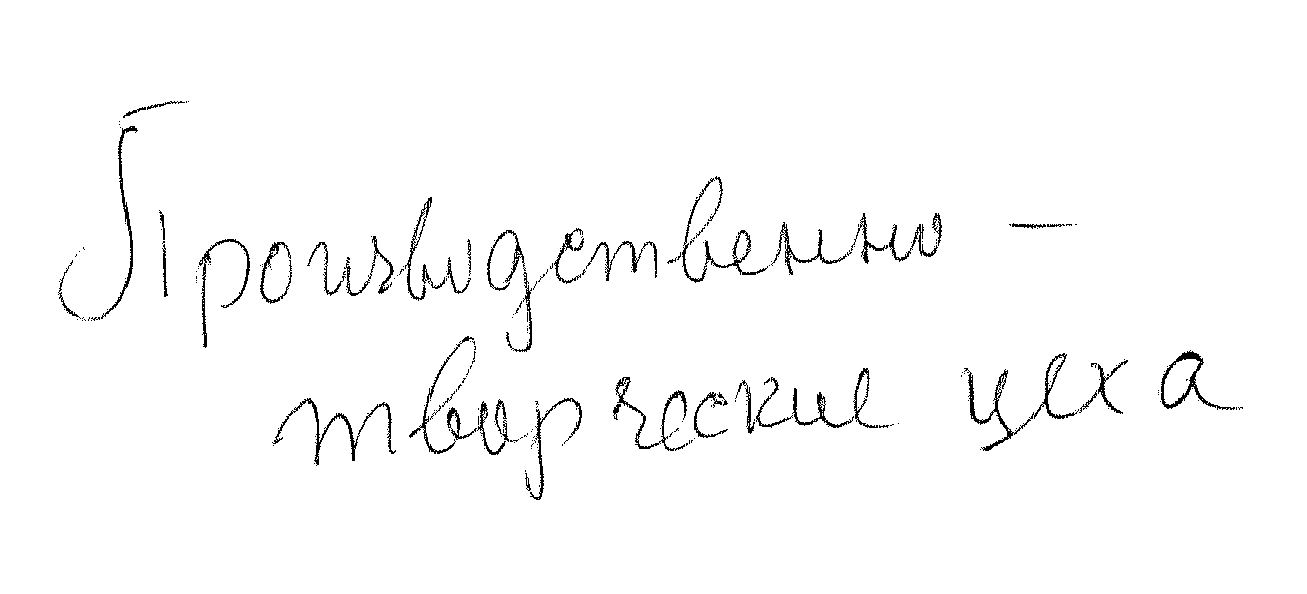 Производственно -
творческие цеха